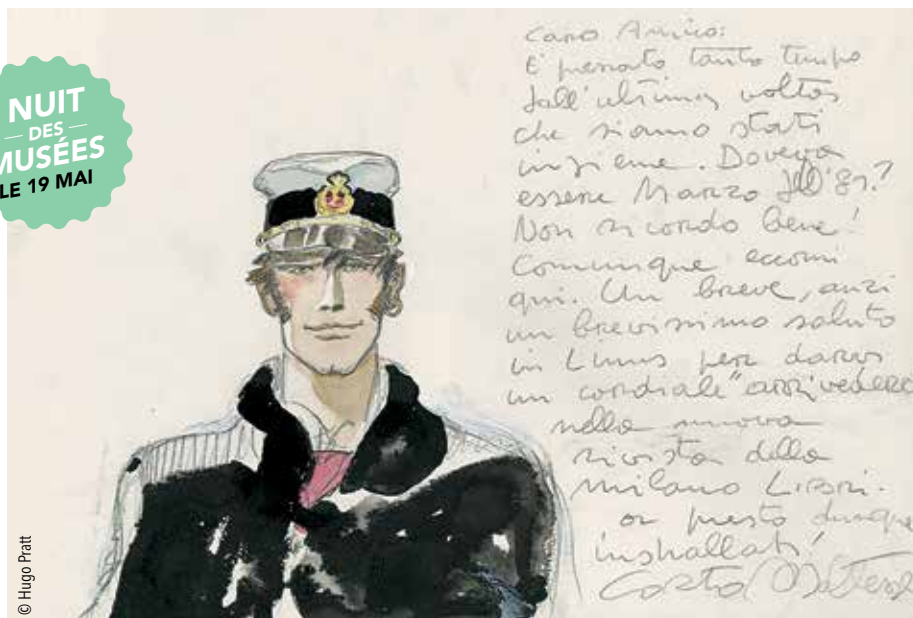 NUIT
DES
MUSÉES
LE 19 MAI
Caro Amico:
E' passato tanto tempo
dall'ultima volta
che siamo stati
insieme. Doveva
essere Marzo dell'81?
Non ricordo bene!
Comunque eccomi
qui. Un breve, anzi
un brevissimo saluto
in Linus per darvi
un cordiale "arrivederci
nella nuova
rivista della
Milano Libri.
a presto dunque
inshallah!
Corto Maltese
© Hugo Pratt